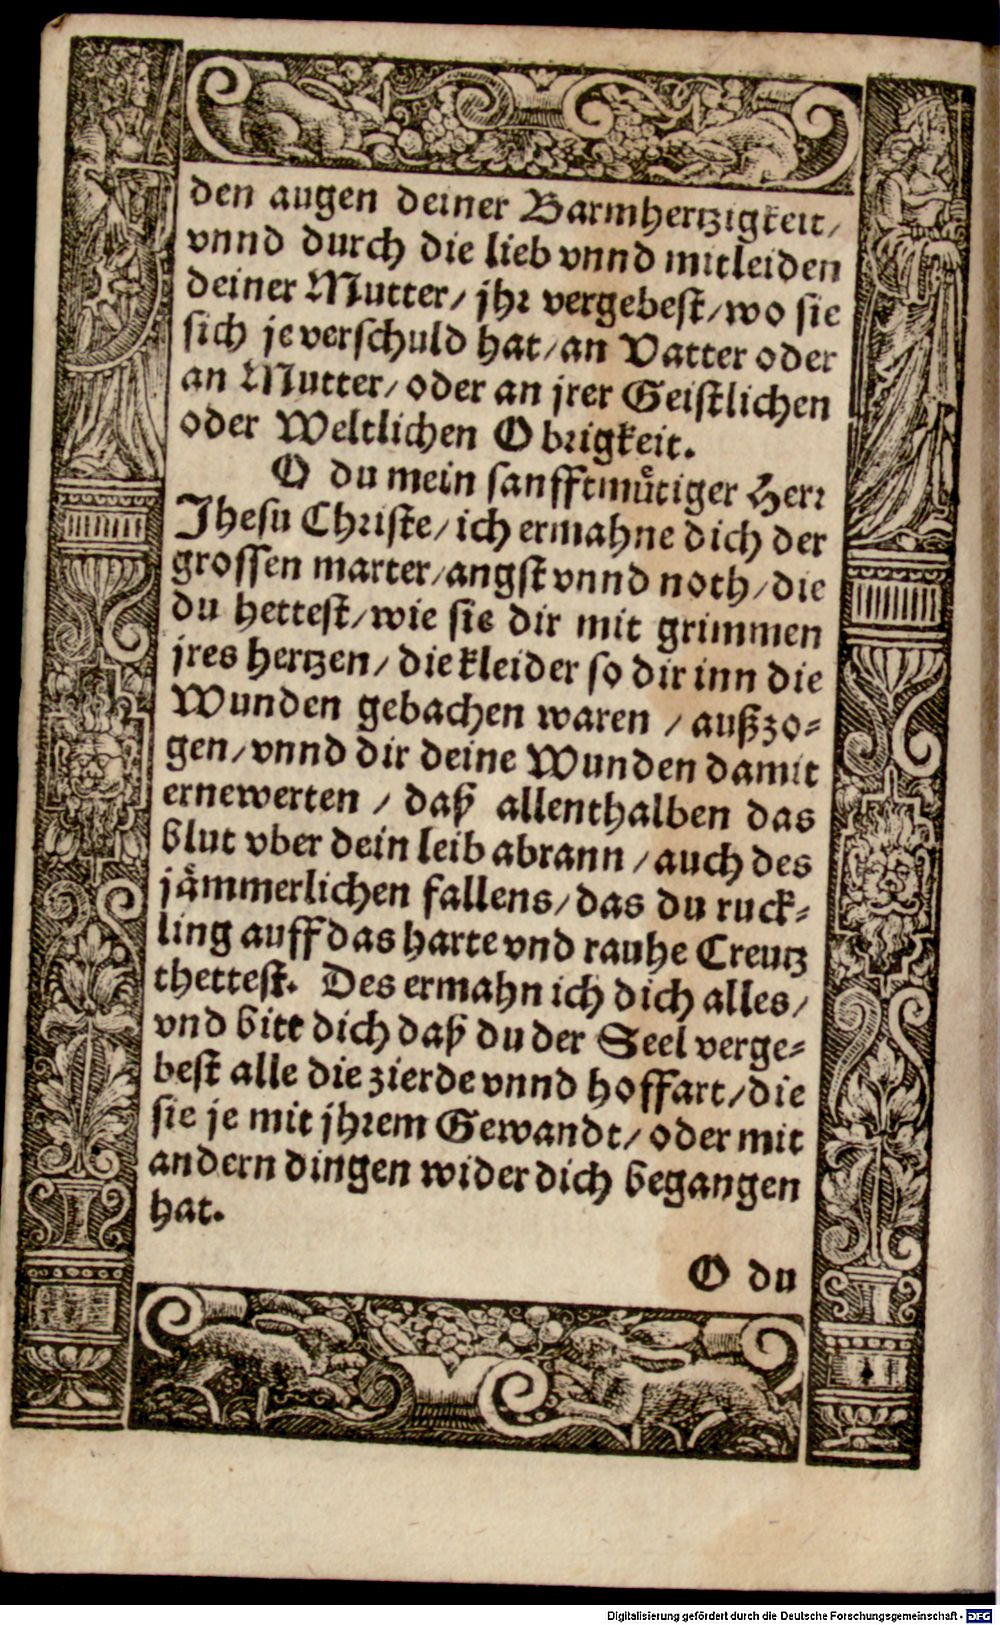 den augen deiner Barmhertzigkeit/
vnnd durch die lieb vnnd mitleiden
deiner Mutter/ jhr vergebest/ wo sie
sich je verschuld hat/ an Vatter oder
an Mutter/ oder an jrer Geistlichen
oder Weltlichen Obrigkeit.
O du mein sanfftmuͤtiger Herr
Jhesu Christe/ ich ermahne dich der
grossen marter/ angst vnnd noth/ die
du hettest/ wie sie dir mit grimmen
jres hertzen/ die kleider so dir inn die
Wunden gebachen waren / außzo-
gen/ vnnd dir deine Wunden damit
ernewerten / daß allenthalben das
blut vber dein leib abrann / auch des
jaͤmmerlichen fallens/ das du ruck-
ling auff das harte vnd rauhe Creutz
thettest. Des ermahn ich dich alles/
vnd bitt dich daß du der Seel verge-
best alle die zierde vnnd hoffart/ die
sie je mit jhrem Gewandt/ oder mit
andern dingen wider dich begangen
hat.
O du
Digitalisierung gefördert durch die Deutsche Forschungsgemeinschaft - DFG